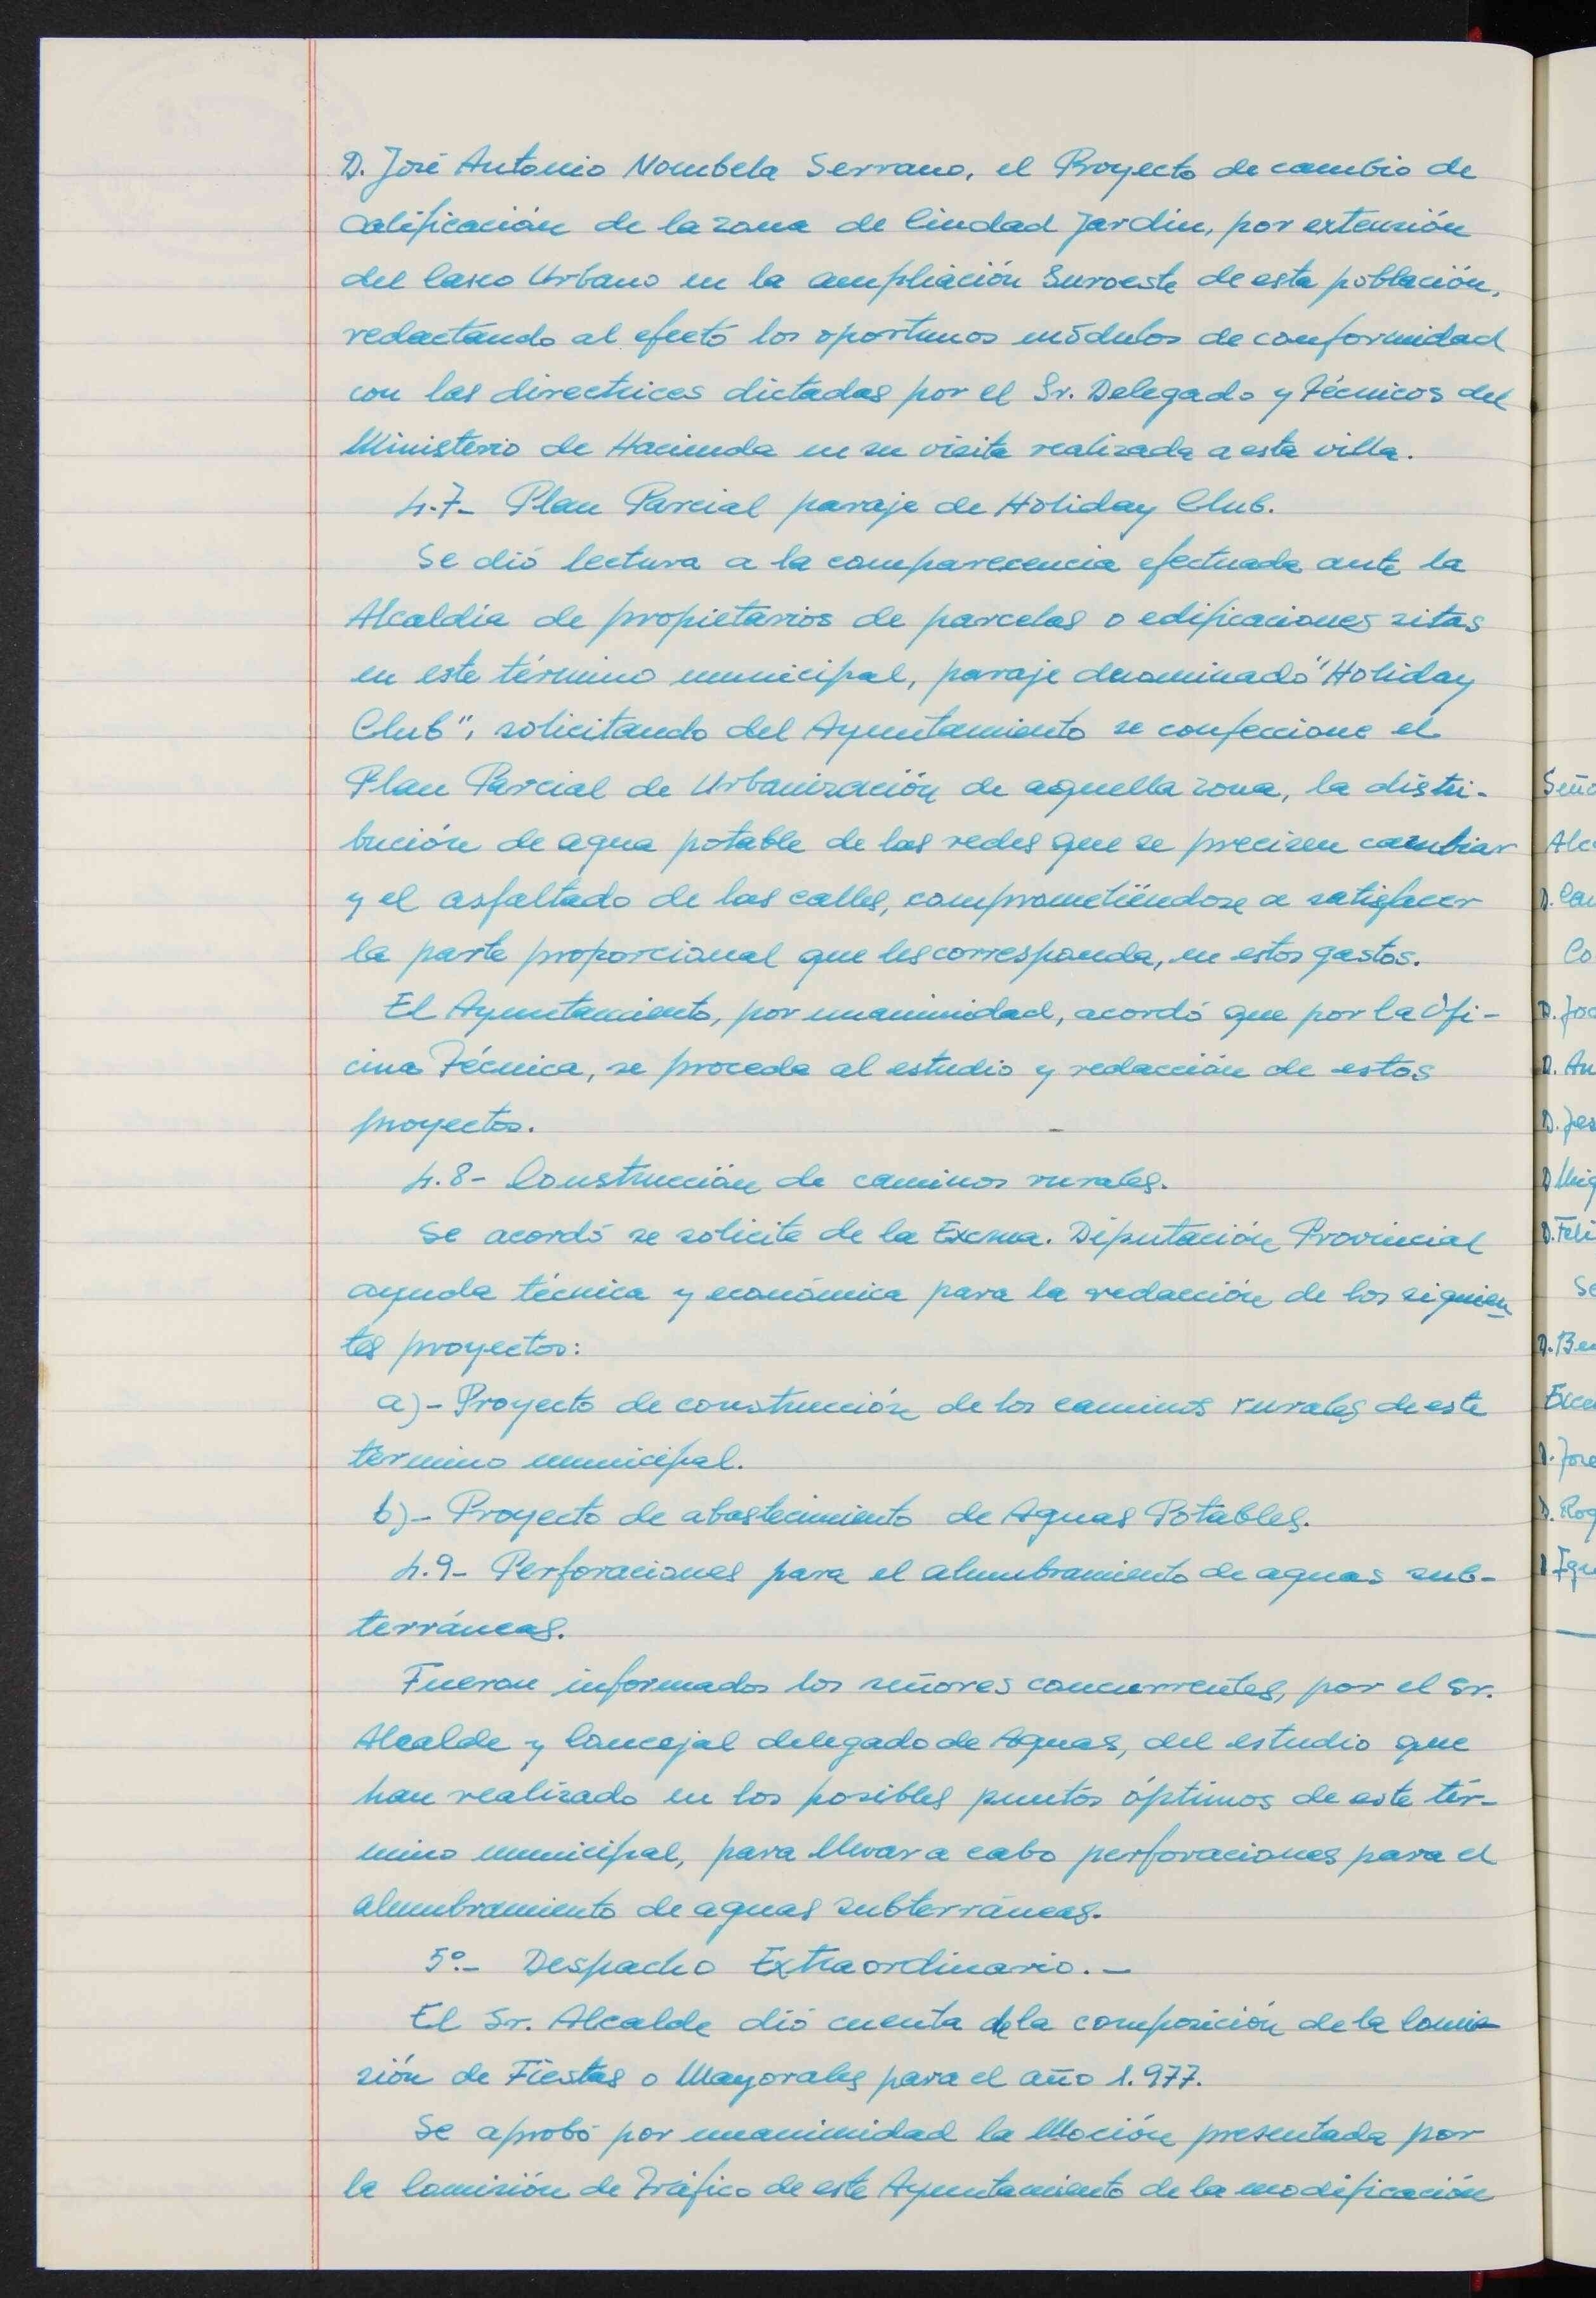 D. José Antonio Nombela Serrano, el Proyecto de cambio de
Calificación de la zona de Ciudad Jardín, por extensión
del Casco Urbano en la ampliación Suroeste de esta población,
redactando al efecto los oportunos módulos de conformidad
con las directrices dictadas por el Sr. Delegado y Técnicos del
Ministerio de Hacienda en su visita realizada a esta villa.
4.7- Plan Parcial paraje de Holiday Club.
Se dió lectura a la comparecencia efectuada ante la
Alcaldía de propietarios de parcelas o edificaciones sitas
en este término municipal, paraje denominado "Holiday
Club", solicitando del Ayuntamiento se confeccione el
Plan Parcial de Urbanización de aquella zona, la distri-
bución de agua potable de las redes que se precisen cambiar
y el asfaltado de las calles, comprometiéndose a satisfacer
la parte proporcional que les corresponda, en estos gastos.
El Ayuntamiento, por unanimidad, acordó que por la Ofi-
cina Técnica, se proceda al estudio y redacción de estos
proyectos.
4.8- Construcción de caminos rurales.
Se acordó se solicite de la Excma. Diputación Provincial
ayuda técnica y económica para la redacción de los siguien
tes proyectos:
a)- Proyecto de construcción de los caminos rurales de este
término municipal.
b)- Proyecto de abastecimiento de Aguas Potables.
4.9- Perforaciones para el alumbramiento de aguas sub-
terráneas.
Fueron informados los señores concurrentes, por el Sr.
Alcalde y Concejal delegado de Aguas, del estudio que
han realizado en los posibles puntos óptimos de este tér-
mino municipal, para llevar a cabo perforaciones para el
alumbramiento de aguas subterráneas.
5º.- Despacho Extraordinario.-
El Sr. Alcalde dió cuenta de la composición de la Comi-
sión de Fiestas o Mayorales para el año 1.977.
Se aprobó por unanimidad la Moción presentada por
la Comisión de Tráfico de este Ayuntamiento de la modificación